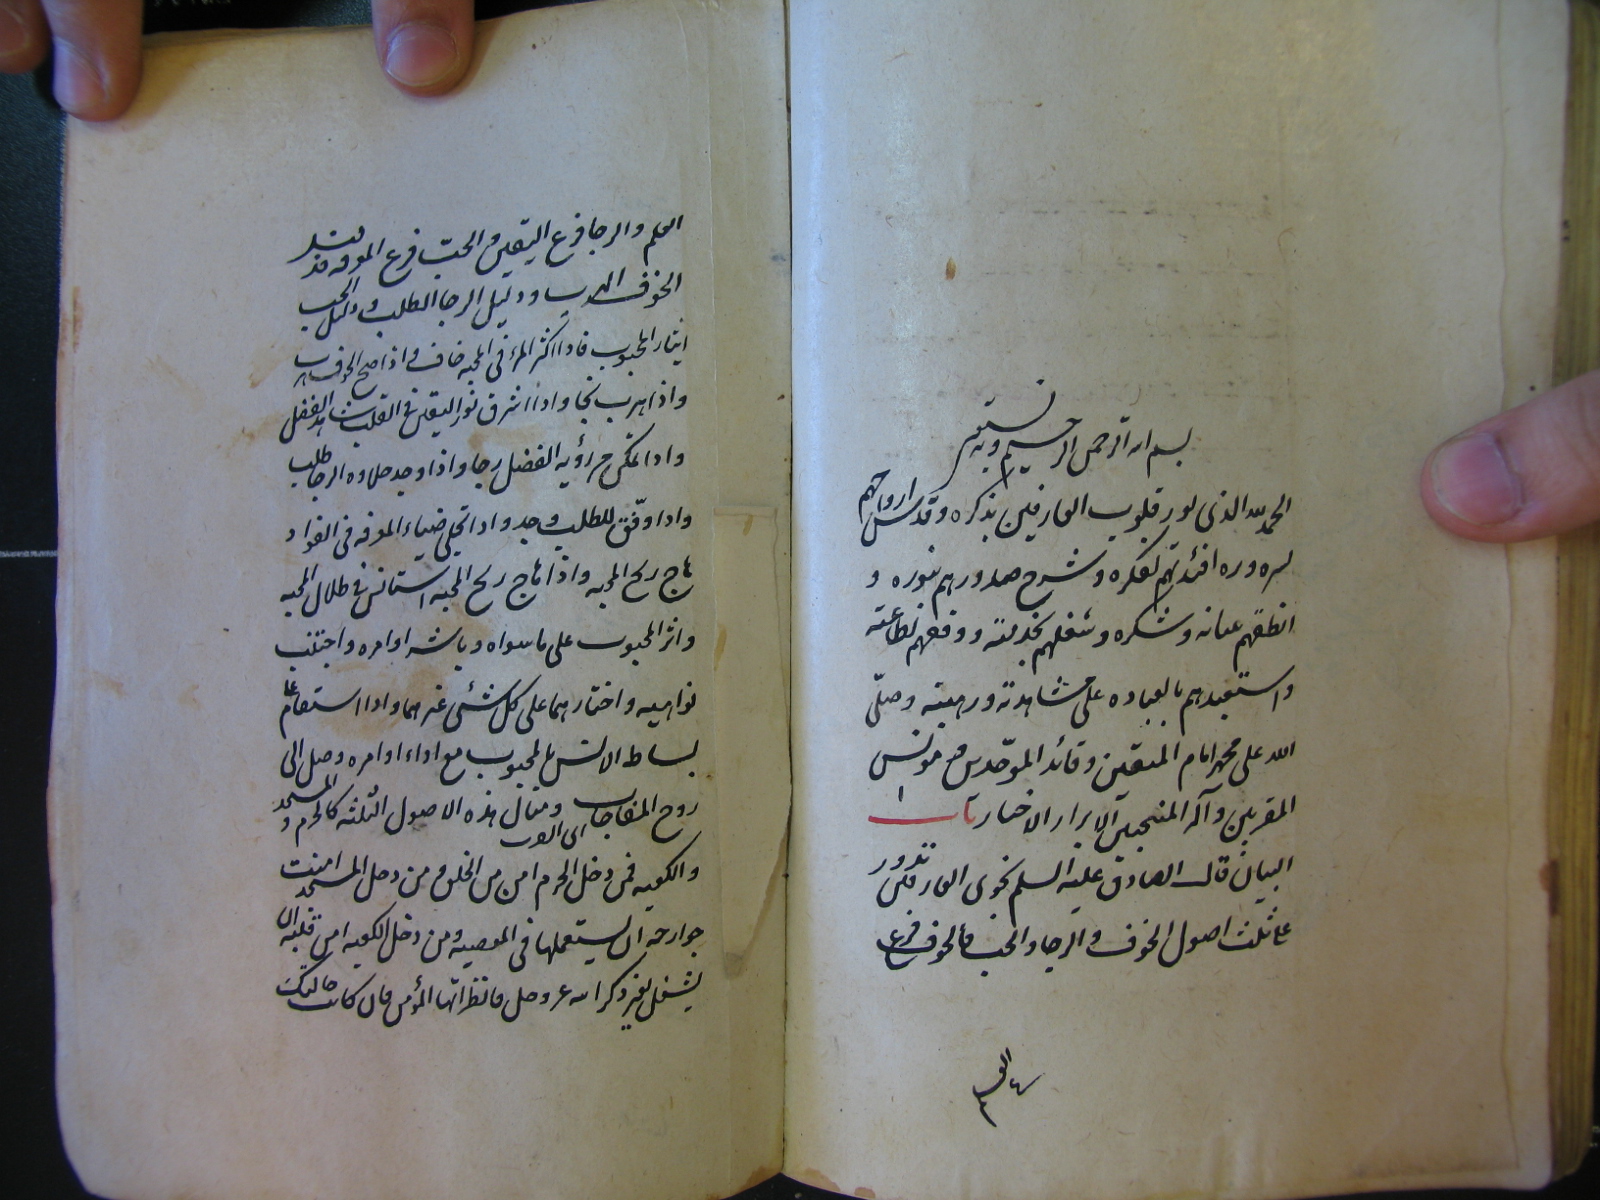 بسم الله الرحمن الرحيم وبه نستعين
الحمد لله الذى نور قلوب العارفين بذكره وقدس ارواحهم
بسره وره افئدتهم لفكره وشرح صدورهم بنوره و
انطقهم بثنائه وشكره وشغلهم بخدمته ووفقهم لطاعته
واستعبدهم بالعباده على مشاهدته ورهبته وصلّى
الله على محمد امام المتقين وقائد الموحّدين مونس
المقربين وآله المنتجبين الابرار الاخيار باب
البيان قال الصادق عليه السلم نجوى العارفين تدور
على ثلث اصول الخوف والرجا والحب فالخوف فرع
العلم والرجا فرع اليقين والحبّ فرع المعرفه فدليل
الخوف الهرب ودليل الرجا الطلب ودليل الحب
ايثار المحبوب فاذا اكثر المرء فى المحبه خاف واذا صح الخوف هرب
واذا هرب نجا واذا اشرق نور اليقين فى القلب شاهد الفضل
واذا تمكن من رؤيه الفضل رجا واذا وجد حلاوه الرجا طلب
واذا وفّق للطلب وجد واذا تجلى ضياء المعرفه فى الفواد
هاج ريح المحبه واذا هاج ريح المحبه استانس فى ظلال المحبه
واثر المحبوب على ما سواه وباشر اوامره واجتنب
نواهيه واختارهما على كل شئ غيرهما واذا استقام على
بساط الانس بالمحبوب مع اداء اوامره وصل الى
روح المناجات اى القرب ومثال هذه الاصول الثلثه كالحرم والمسجد
والكعبه فمن دخل الحرم امن من الخلق ومن دخل المسجد امنت
جوارحه ان يستعملها فى المعصيه ومن دخل الكعبه امن قلبه ان
يشغل بغير ذكر الله عز وجل فانظر ايّها المؤمن فان كانت حالتك